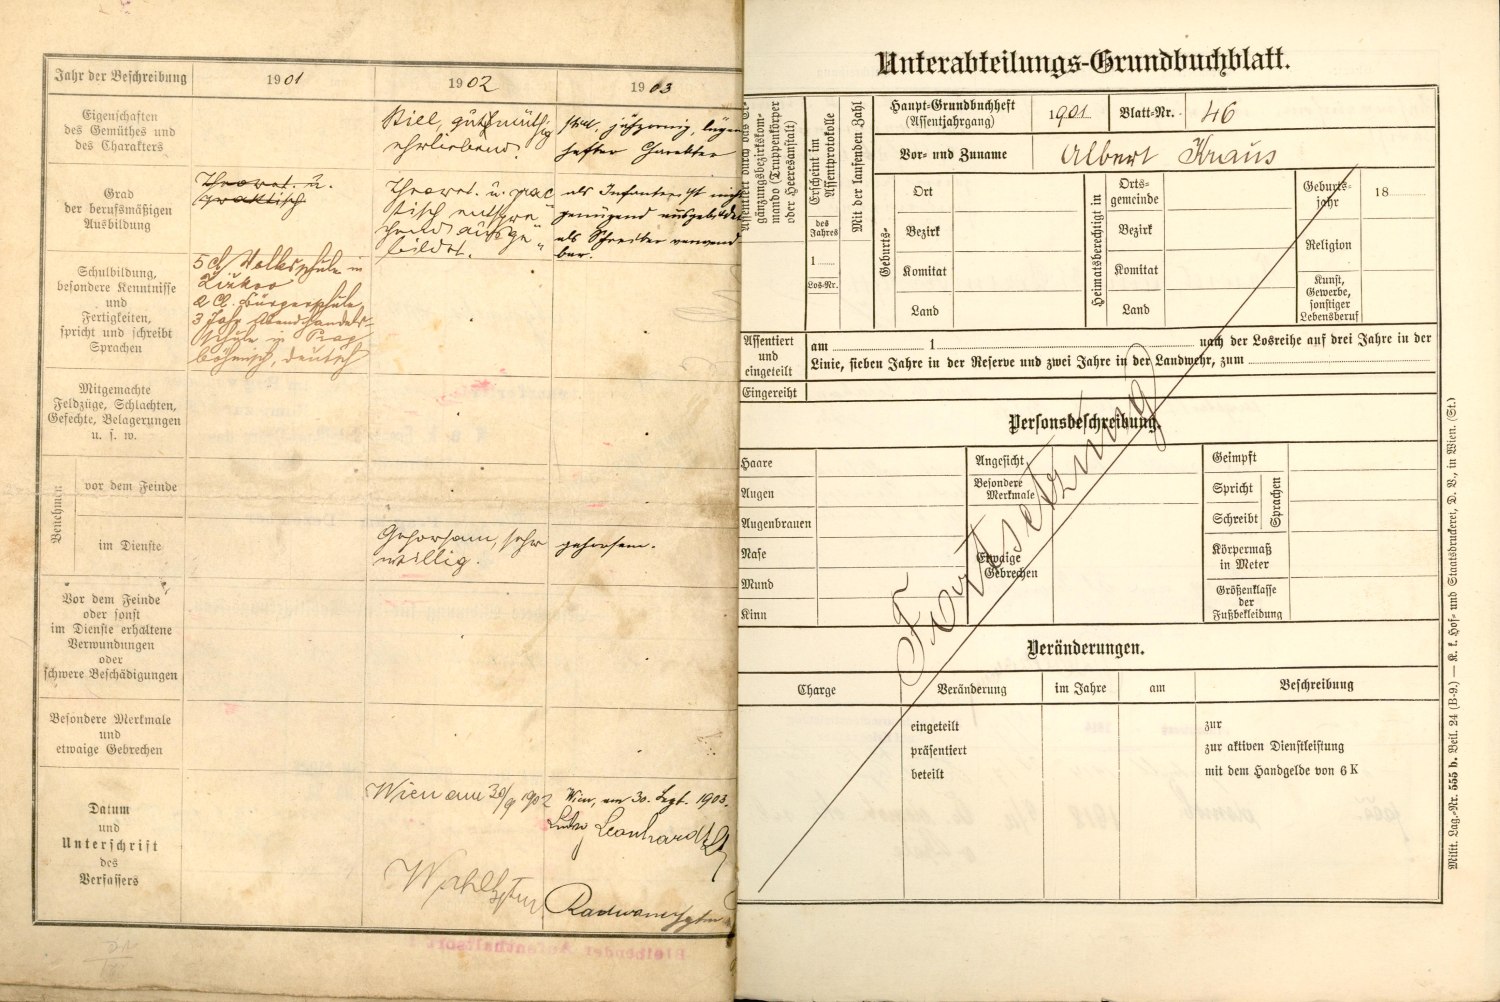 Jahr der Beschreibung 1901 1902 1903
Eigenschaften
des Gemüthes und
des Charakters
Stiel, gutmüthig
ehrliebend.
jähzornig, lügen
hafter Charakter
Grad
der berufsmäßigen
Ausbildung
Theoret. u.
praktisch
Theoret. u. prac
tisch entspre„
chend ausge„
bildet.
als Infanterist nicht
genügend ausgebildet
als Schreiber verwend
bar.
Schulbildung,
besondere Kenntnisse
und
Fertigkeiten,
spricht und schreibt
Sprachen
5 Cl Volksschule in
Zizkov
2 Cl. Bürgerschule,
3 Jahr Abendhandels-
schule in Prag
böhmisch, deutsch
Mitgemachte
Feldzüge, Schlachten,
Gefechte, Belagerungen
u. s. w.
Benehmen
vor dem Feinde
im Dienste
Gehorsam, sehr
willig.
gehorsam.
Vor dem Feinde
oder sonst
im Dienste erhaltene
Verwundungen
oder
schwere Beschädigungen
Besondere Merkmale
und
etwaige Gebrechen
Datum
und
Unterschrift
des
Verfassers
Wien am 30/9 1902
Wien, am 30. Sept. 1903.
Leonhardt
Bleibender Aufenthaltsort
Unterabteilungs-Grundbuchblatt.
Assentiert durch das Er-
gänzungsbezirkskom-
mando (Truppenkörper
oder Heeresanstalt)
Erscheint im
Assentprotokolle
des
Jahres
1
Los-Nr.
Mit der laufenden Zahl
Haupt-Grundbuchheft
(Assentjahrgang)
1901
Blatt-Nr. 46
Vor- und Zuname
Albert Kraus
Geburts-
Ort
Bezirk
Komitat
Land
Heimatsberechtigt in
Orts-
gemeinde
Bezirk
Komitat
Land
Geburts-
jahr
18
Religion
Kunst,
Gewerbe,
sonstiger
Lebensberuf
Assentiert
und
eingeteilt
am 1 nach der Losreihe auf drei Jahre in der
Linie, sieben Jahre in der Reserve und zwei Jahre in der Landwehr, zum
Eingereiht
Personsbeschreibung.
Haare
Augen
Augenbrauen
Nase
Mund
Kinn
Angesicht
Besondere
Merkmale
Etwaige
Gebrechen
Geimpft
Spricht
Schreibt
Sprachen
Körpermaß
in Meter
Größenklasse
der
Fußbekleidung
Fortsetzung
Veränderungen.
Charge Veränderung im Jahre am Beschreibung
eingeteilt zur
präsentiert zur aktiven Dienstleistung
beteilt mit dem Handgelde von 6 K
Milit. Lag.-Nr. 555 b. Beil. 24 (B-9.) — K. k. Hof- und Staatsdruckerei, D. V., in Wien. (St.)